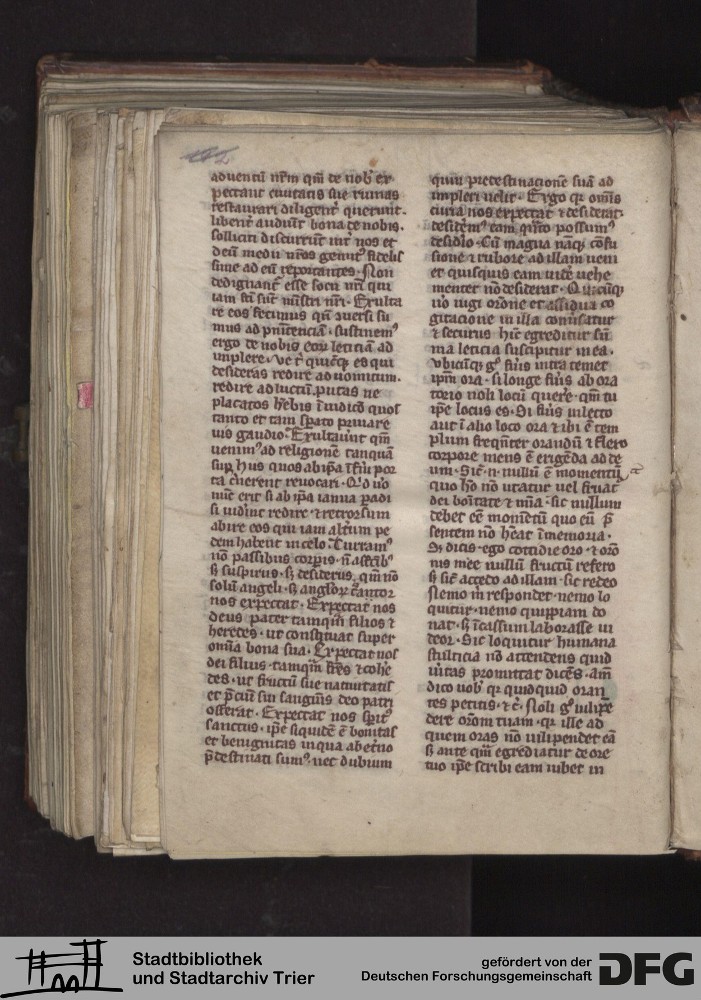 aduentū nr̄m qm̄ de nob̾ ex
pectant ciuitatis sue ruinas
restaurari diligent̾ querunt.
libent̾ audiūt bona de nobis.
solliciti discurrūt int̾ nos et
deū medij
sime ad eū reportantes. Non
dedignant̾ esse socij nr̄i qui
iam fc̄i sūt mīstri nr̄i. Exulta
re eos fecimus qn̄ 9uersi su
mus ad pnītenciā. festinem9
ergo de nobis eoꝝ leticiā ad
inplere. ve t̾ quicūqꝫ es qui
desideras redire ad uomitum.
redire ad luctū. putas ne
placatos h̾ebis ī iudicō quos
tanto et tam sp̾ato priuare
uis gaudio. Exultauūt qm̄
uenim9 ad religionē tanquā
sup̾ hijs quos ab ip̄a ī f̾ni por
ta cn̾erent reuocari. Qͥd uͦ
nūc erit si ab ip̄a ianua ꝑadi
si uid̾int redire ⁊ retrorsum
abire eos qui iam alt̾um pe
dem habent in celo. Curram9
nō passibus corꝑis. ꝫ affectib9
ꝫ suspirijs. ꝫ desiderijs. qm̄ nō
solū angeli. ꝫ angloꝝ c̾ator
nos expectat. Expectat nos
deus pater tamqͣm filios ⁊
heredes. ut constituat super
om̄ia bona sua. Expectat nos
dei filius. tamqͣm fr̄es ⁊ cohe
des. ut fructū sue natiuitatis
et p̄ciū sui sanguīs deo patri
offerat. Expectat nos sp̄ūs
sanctus. ip̄e siquidē ē bonitas
et benignitas in qua ab et̾no
p̄destinati sum9 nec dubium
quin predestinacionē suā ad
impleri uelit. Ergo qꝛ om̄is
curia nos expectat ⁊ desiderat
desidem9 eam qͣnto possum9
desidio. Cū magna nāqꝫ cōfu
sione ⁊ rubore ad illam ueni
et quisquis eam uiue̾ uehe
menter nō desiderat. Quicūqꝫ
uͦ iugi or̄one et assidua co
gitacione in illa cōnūsatur
⁊ securus hinc egreditur sū
ma leticia suscipitur in ea.
Vbicūqꝫ gͦ fūis intra temet
ip̄m ora. si longe fūis ab ora
torio noli locū quere̾. qm̄ tu
ip̄e locus es. Si fūis in lecto
aut ī alio loco ora ⁊ ibi ē tem
plum. freqn̄ter orandū ⁊ flexo
corpore mens ē erigēda ad de
um. Sic̄ .n. nullū ē momentū
quo hō nō utatur uel fruat̾
dei boītate ⁊ mīa. sic nullum
debet eē momētū quo eū p̄
sentem nō h̾eat ī memoria.
Sꝫ dicis. ego cottidie oro. ⁊ or̄o
nis mee nullū fructū refero
ꝫ sic̄ accedo ad illam. sic redeo
Nemo m̾ respondet. nemo lo
quitur. nemo quippiam do
nat. ꝫ ī cassum laborasse ui
deor. Sic loquitur humana
stulticia nō attendens quid
ūitas promittat dicēs. am̄
dico uob̾ qꝛ quidquid oran
tes petitis. ⁊c̾. Noli gͦ uilipē
dere or̄om tuam. qꝛ ille ad
quem oras nō uilipendet eā
ꝫ ante qͣm egrediatur de ore
tuo ip̄e scribi eam iubet in
Stadtbibliothek
und Stadtarchiv Trier
gefördert von der
Deutschen Forschungsgemeinschaft
DFG